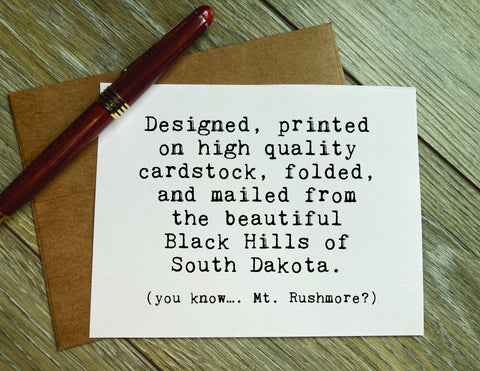 Designed, printed
on high quality
cardstock, folded,
and mailed from
the beautiful
Black Hills of
South Dakota.
(you know…. Mt. Rushmore?)